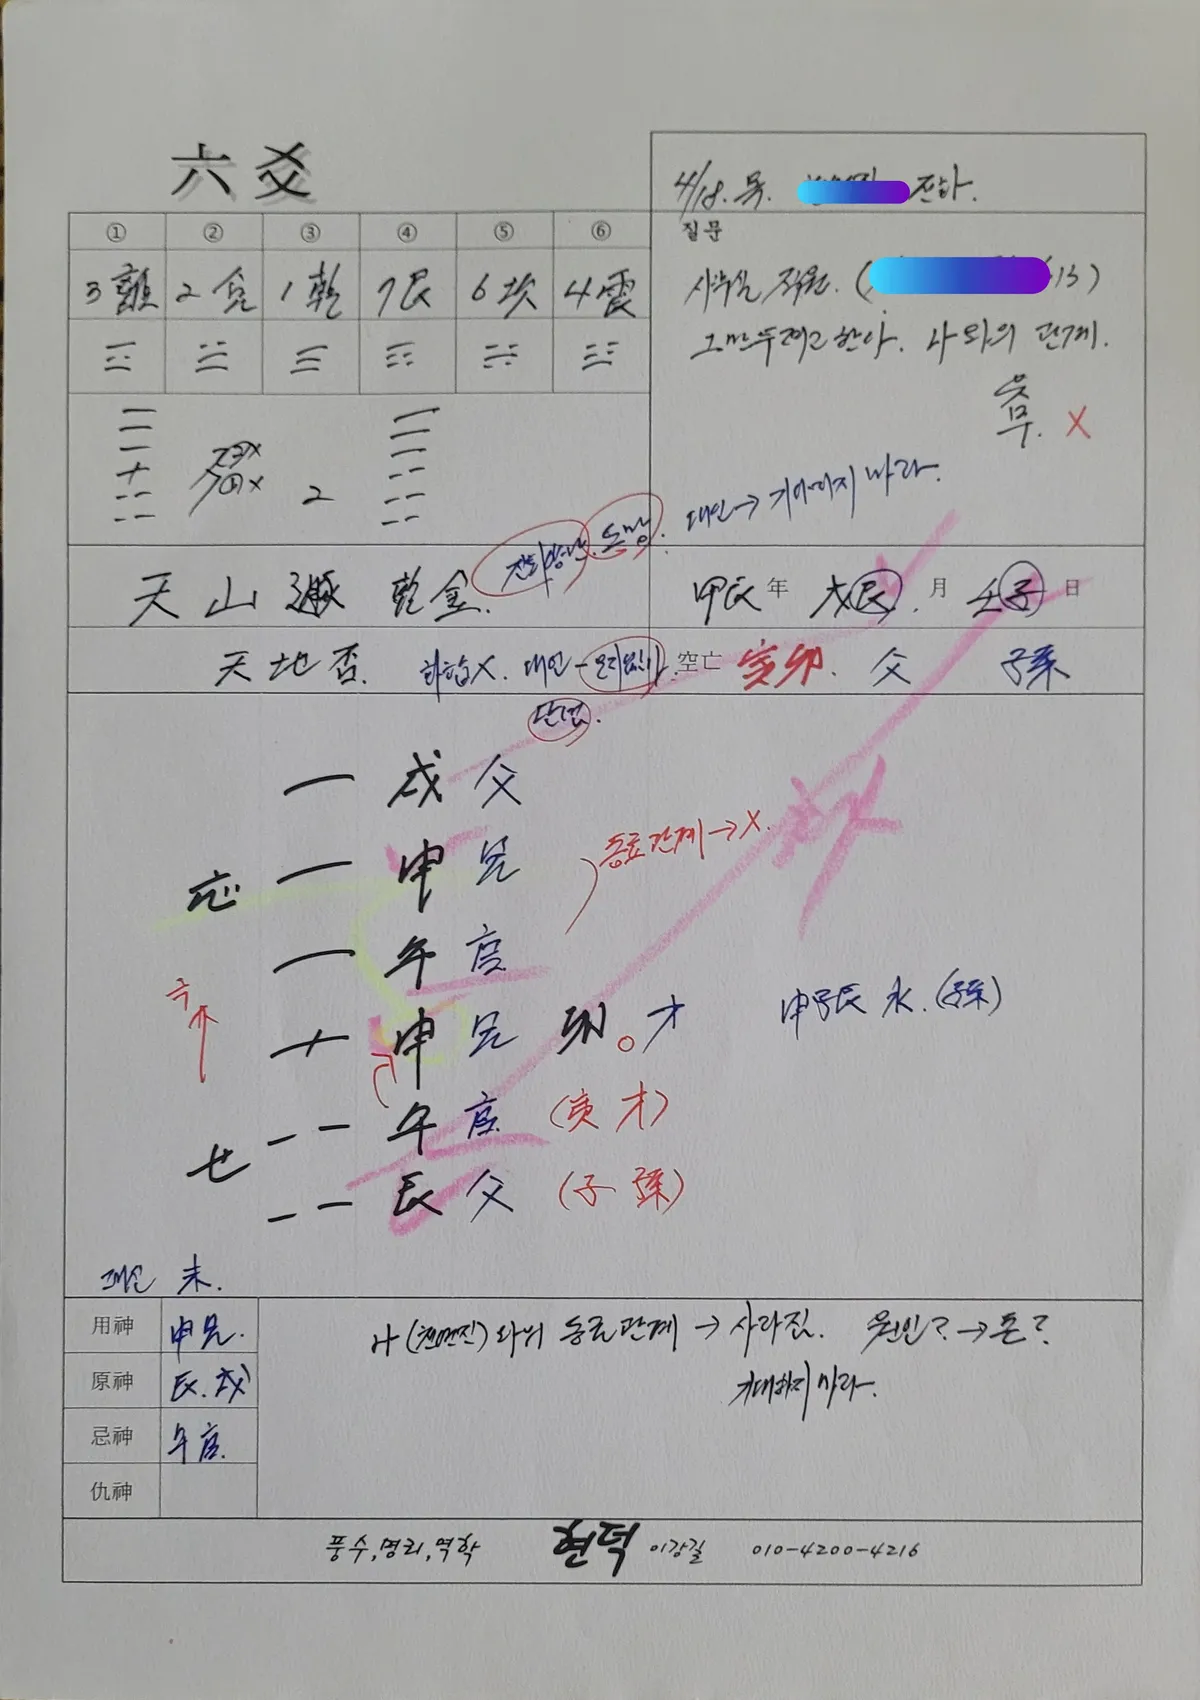 六爻
4/18. 목. 전화.
① ② ③ ④ ⑤ ⑥
질문
3離 2兌 1乾 7艮 6坎 4震
사무실 직원. ( 13)
그만두려고 한다. 나와의 관계.
유무. X
2
대인→ 기대하지 마라.
도망.
天山遯 乾金.
甲辰年 戊辰. 月 壬子日
天地否. 화합X. 대인-
空亡 寅卯. 父 子孫
단절.
一 戌 父
応 一 申 兄
동료관계→X.
一 午 官
申 兄 卯 才
申子辰 水. (子孫)
午 官 (寅 才)
世
辰 父 (子 孫)
未.
用神 申兄.
나( )와의 동료관계 → 사라짐. 원인? → 돈?
原神 辰.戌
기대하지 마라.
忌神 午官.
仇神
풍수,명리,역학 현덕 이강길 010-4200-4216